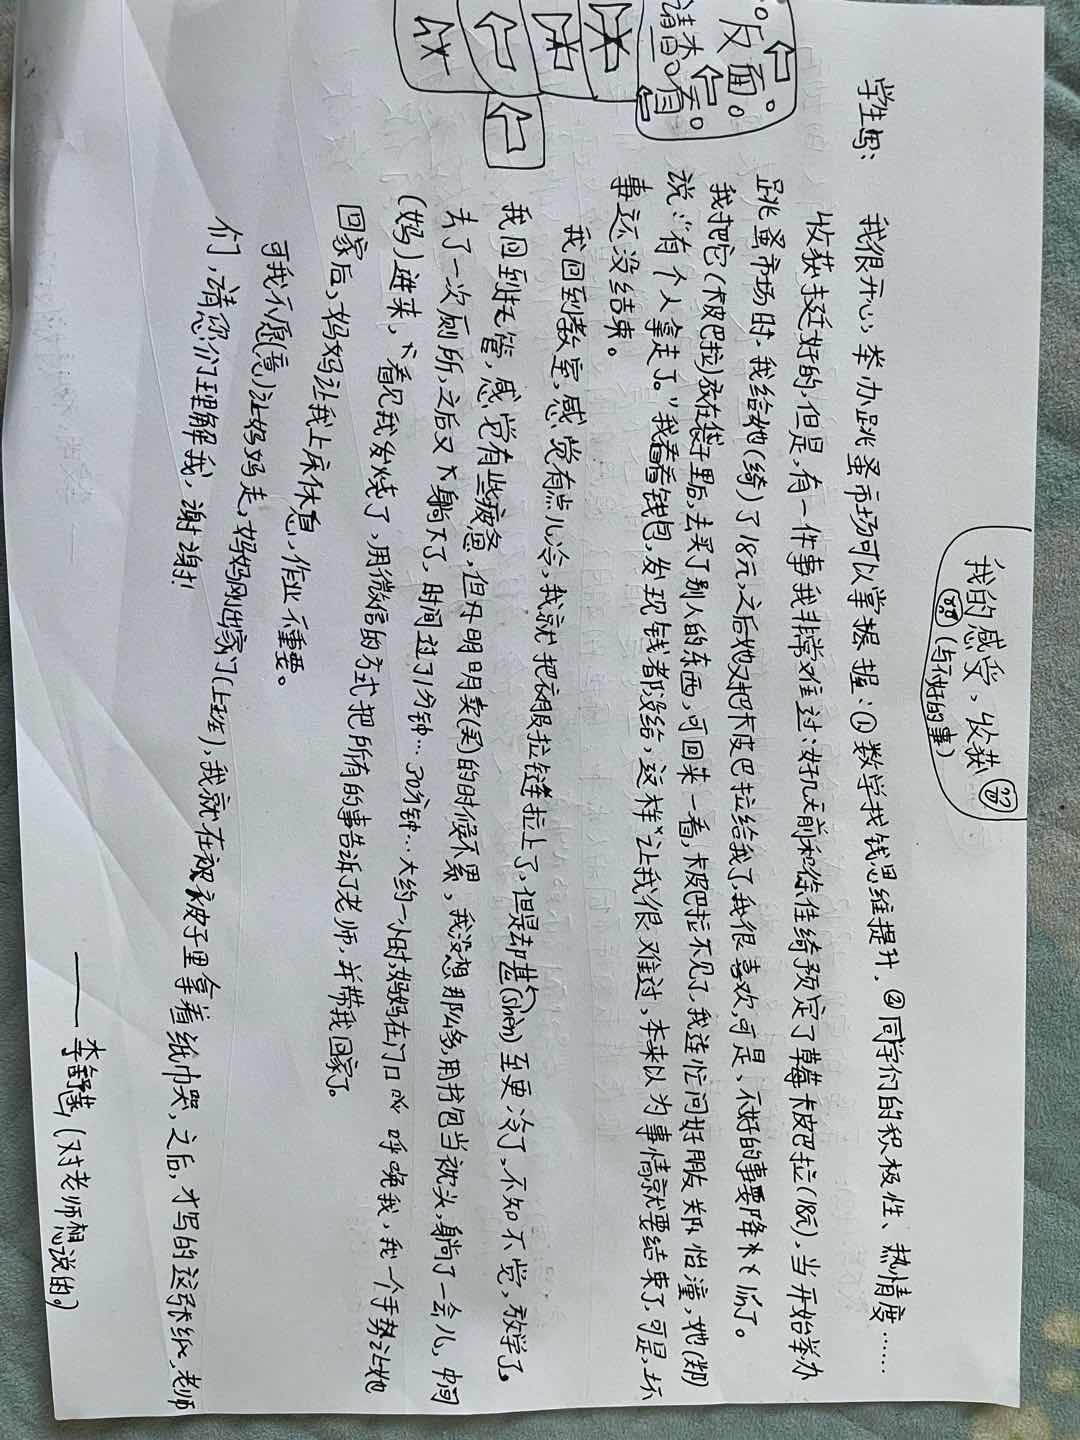 我的感受，收获
(与不好的事)
学生写：
我很开心，举办跳蚤市场可以掌握：①数学找钱思维提升。②同学们的积极性、热情度……
收获挺好的，但是，有一件事我非常难过：好几天前和徐佳绮预定了草莓卡皮巴拉(18元)，当开始举办
跳蚤市场时，我给她(绮)了18元，之后她又把卡皮巴拉给我了，我很喜欢，可是，不好的事要降临了。
我把它(卡皮巴拉)放在袋子里后，去买了别人的东西，可回来一看，卡皮巴拉不见了，我连忙问好朋友郑怡潼，她(郑)
说："有个人拿走了。"我看看钱包，发现钱都没给，这样让我很难过，本来以为事情就要结束了，可是，坏
事还没结束。
我回到教室，感觉有点儿冷，我就把衣服拉链拉上了，但是却甚(shèn)至更冷了，不知不觉，放学了。
我回到托管，感觉有些疲惫，但明明卖(买)的时候不累，我没想那么多，用书包当枕头，躺了一会儿，中间
去了一次厕所，之后又躺下了，时间过了1分钟…30分钟…大约一小时，妈妈在门口呼唤我，我一个手势让她
(妈)进来，看见我发烧了，用微信的方式把所有的事告诉了老师，并带我回家了。
回家后，妈妈让我上床休息，作业不重要。
可我不愿(意)让妈妈走，妈妈刚出家门(上班)，我就在被子里拿着纸巾哭，之后，才写的这张纸，老师
们，请您们理解我，谢谢！
——李馨(对老师想说的。)
反面。
请来看。